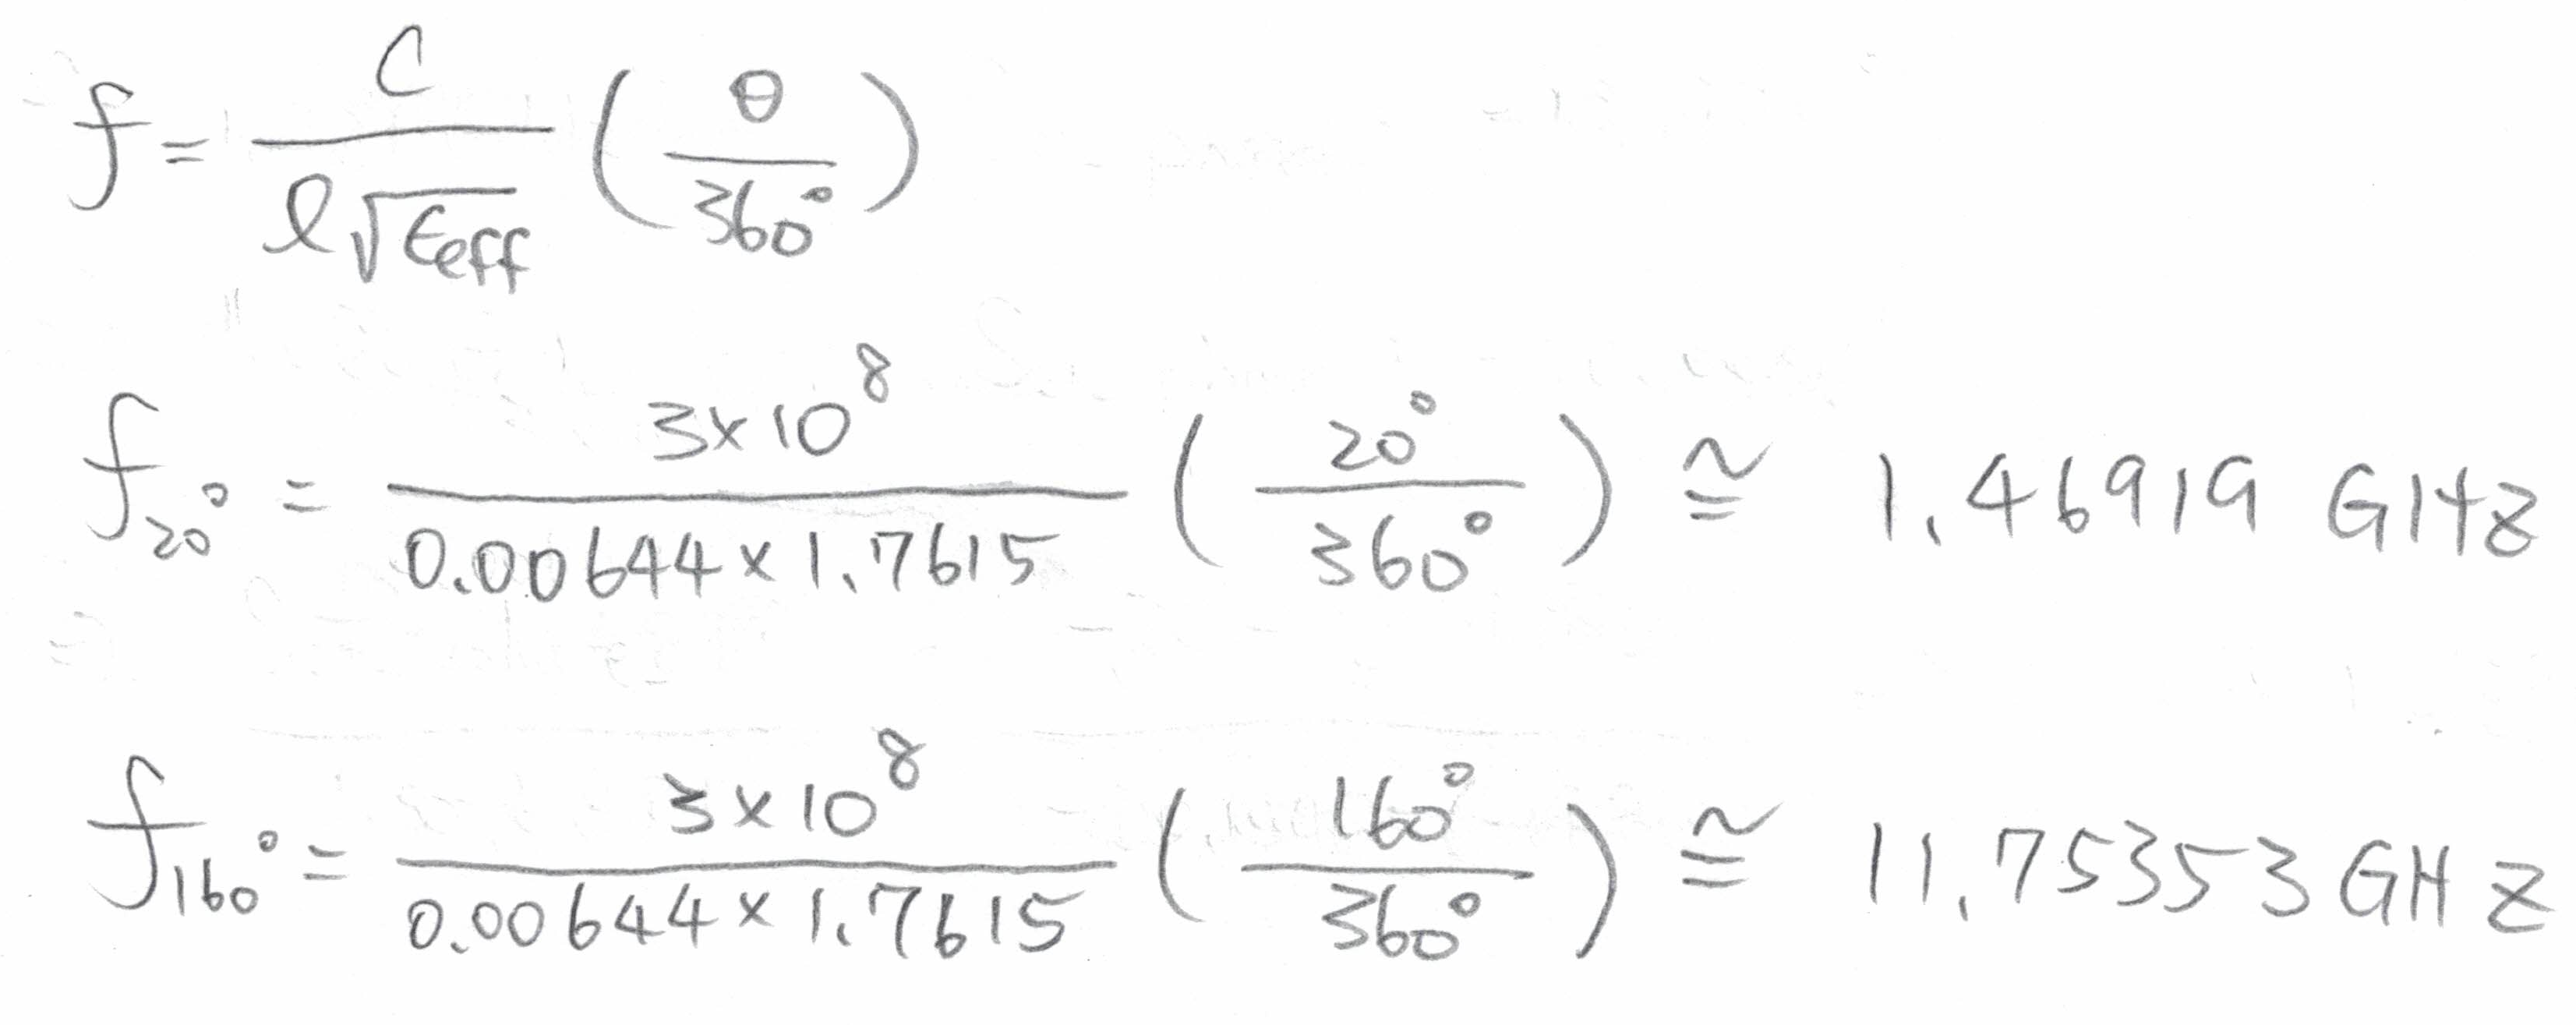 f = c / (ℓ√εeff) (θ / 360°)
f20° = 3×10^8 / (0.00644×1.7615) (20° / 360°) ≅ 1.46919 GHz
f160° = 3×10^8 / (0.00644×1.7615) (160° / 360°) ≅ 11.75353 GHz